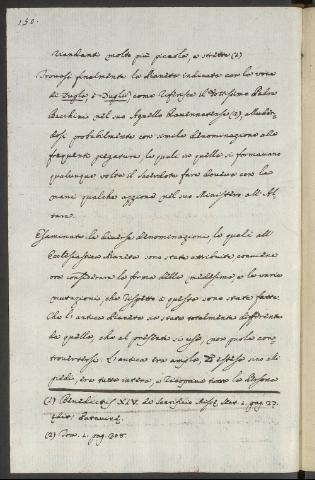 150.
Viandanti molto più picciola, e stretta (1)
Trovasi finalmente la Pianeta indicata con la voce
di Duplo, e Duplos, come riferisce il Dottissimo Padre
Bacchini nel suo Agnello Ravennatense (2), alluden-
dosi probabilmente con simile denominazione alle
frequenti piegature, le quali in quella si formavano
qualunque volta il Sacerdote fare doveva con le
mani qualche azzione nel suo Ministero all' Al-
tare.
Esaminate le diverse denominazioni, le quali all'
Ecclesiastica Pianeta sono state attribuite, conviene
ora considerare la forma della medesima, e le varie
mutazioni, che rispetto a questa sono state fatte.
Che l'antica Pianeta sia stata totalmente differente
da quella, che al presente si usa, non puole con-
trovertersi. L'antica era ampla, distesa sino alli
piedi, era tutta intera, e circondava tutta la Persona
(1) Benedictus XIV. de Sacrificio Missæ Sect. 1. pag. 27.
Edit. Patavinæ.
(2) Tom. 1. pag. 308.